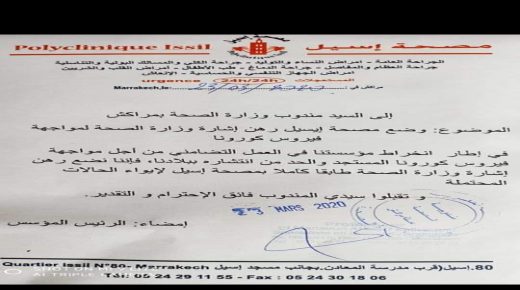 Polyclinique Issil
مصحة إسيل
للجراحة العامة - امراض النساء والتوليد - جراحة الكلي والمسالك البولية والتناسلية
جراحة العظام والمفاصل - جراحة الدماغ - طب الأطفال - امراض القلب والشرايين
امراض الجهاز التنفسي والحساسية - الإنعاش
urgence 24h/24h المستعجلات
Marrakech,le: 23/03/2020 مراكش في
إلى السيد مندوب وزارة الصحة بمراكش
الموضوع: وضع مصحة إيسيل رهن إشارة وزارة الصحة لمواجهة
فيروس كورونا
في إطار انخراط مؤسستنا في العمل التضامني من أجل مواجهة
فيروس كورونا المستجد والحد من انتشاره ببلادنا، فإننا نضع رهن
إشارة وزارة الصحة طابقا كاملا بمصحة إسيل لإيواء الحالات
المحتملة
و تقبلوا سيدي المندوب فائق الإحترام و التقدير.
23 MARS 2020
إمضاء: الرئيس المؤسس
Quartier Issil N°80- Marrakech
80، إسيل (قرب مدرسة المعادن بجانب مسجد إسيل
Tél: 05 24 29 11 55 - Fax: 05 24 30 18 06
AI TRIPLE